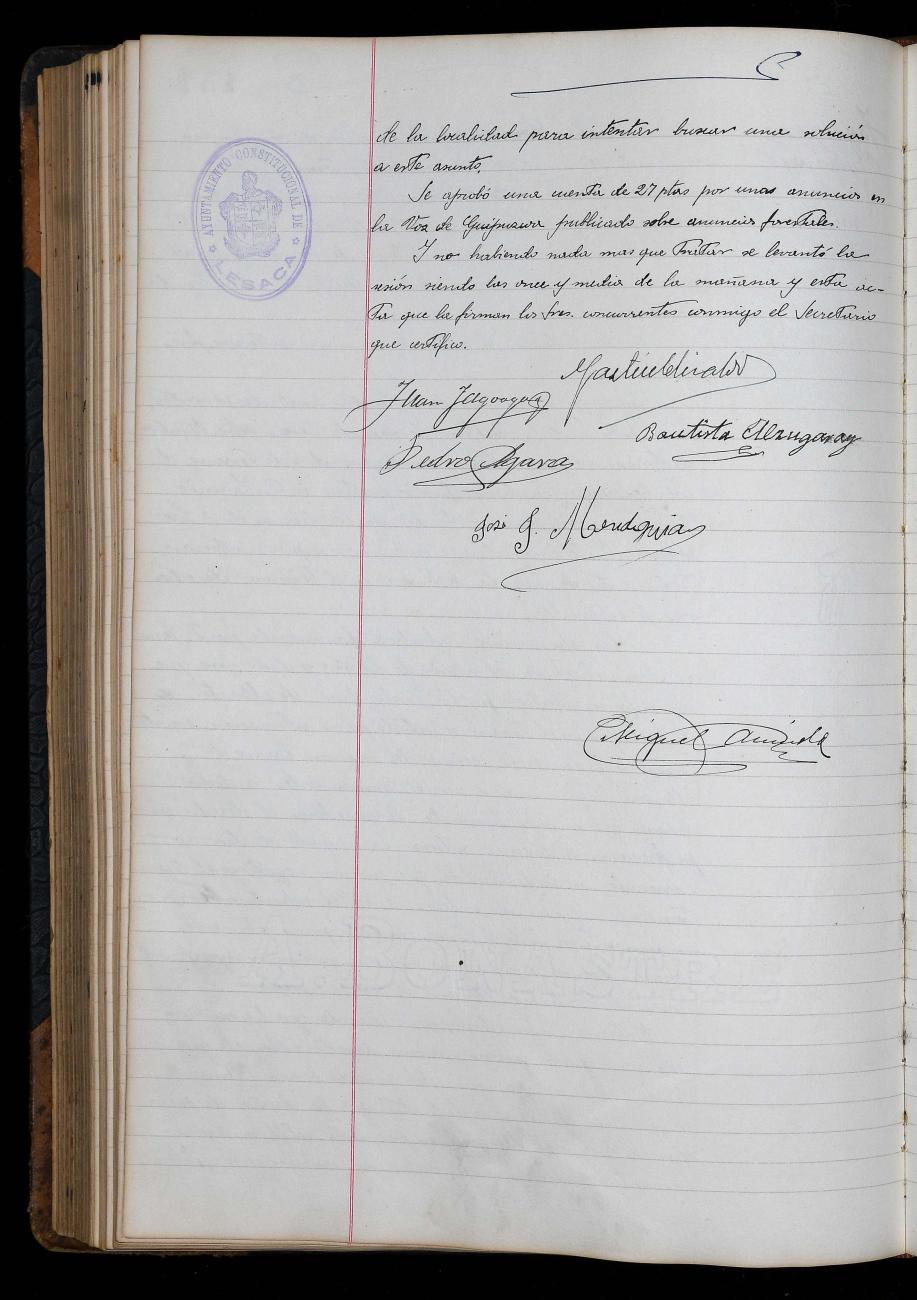 de la localidad para intentar buscar una solución
a este asunto.
Se aprobó una cuenta de 27 ptas por unos anuncios en
la Voz de Guipuzcoa publicado sobre anuncios forestales.
Y no habiendo nada mas que tratar se levantó la
sesión siendo las once y media de la mañana y esta ac-
ta que la firman los Sres. concurrentes conmigo el Secretario
que certifico.
Juan
Bautista Elzugaray
Pedro
José J. Mendiguia
Miguel
AYUNTAMIENTO CONSTITUCIONAL DE
LESACA